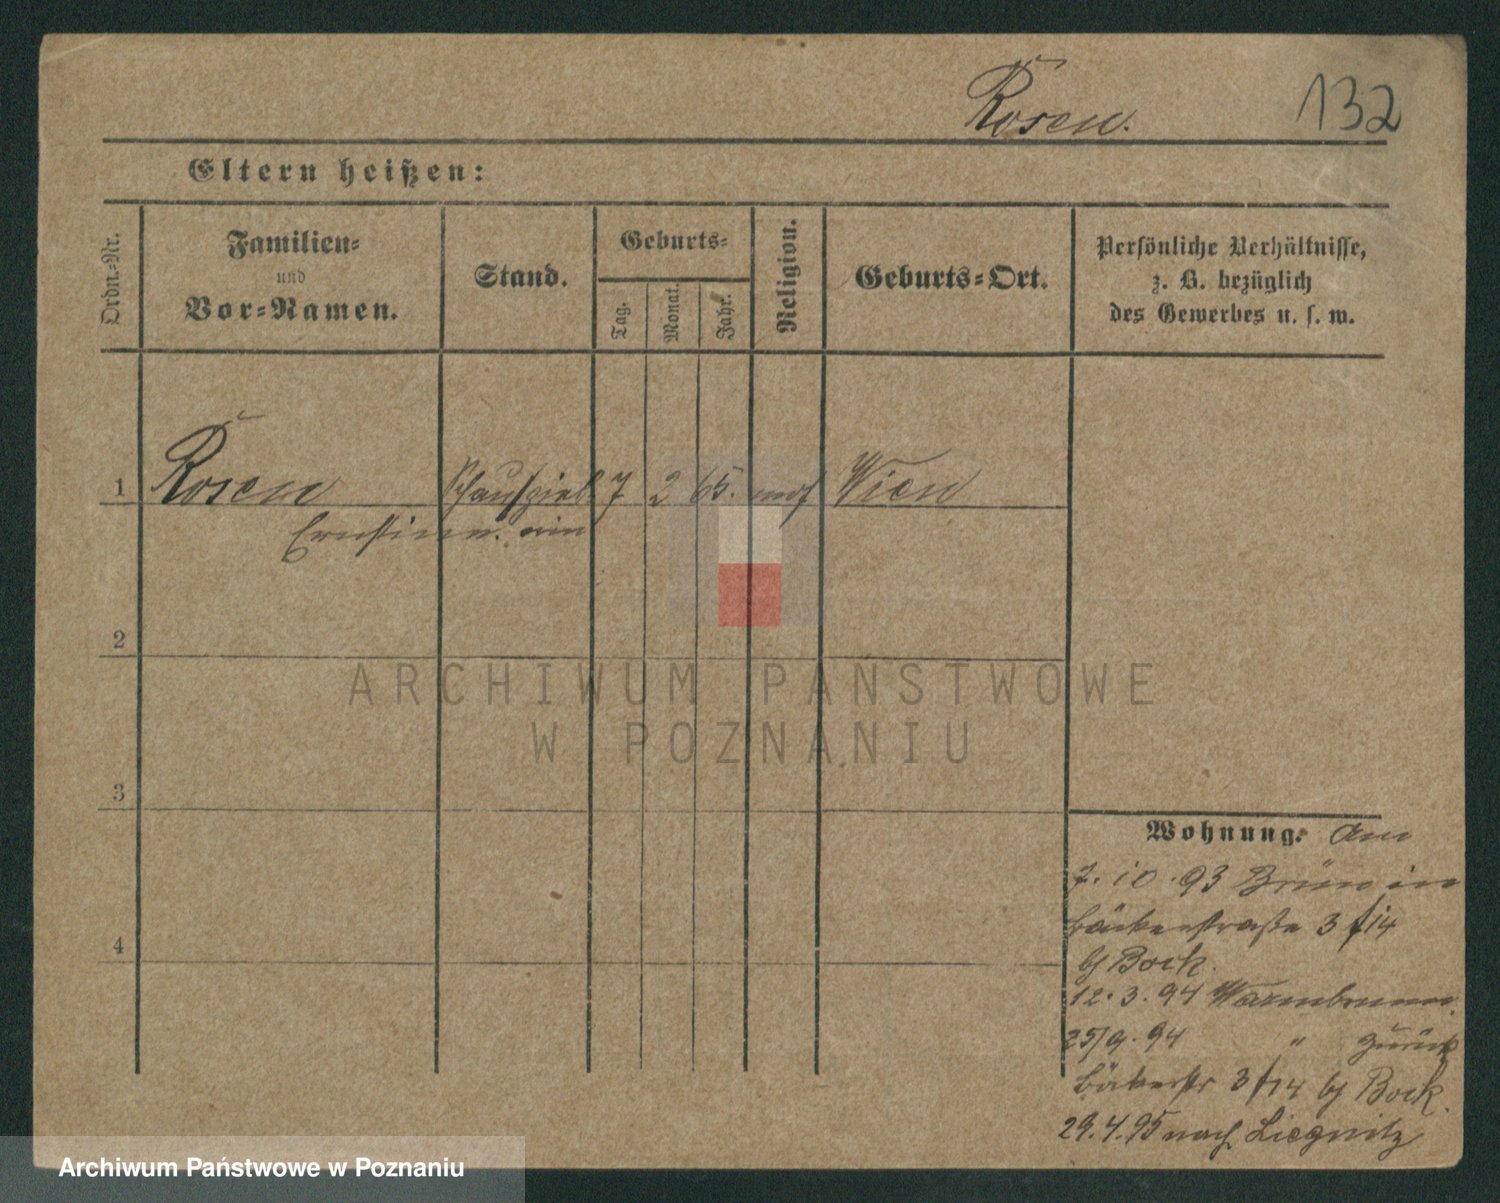 Rosen.
132
Eltern heißen:
Ordn.-Nr.
Familien-
und
Vor-Namen.
Stand.
Geburts-
Tag.
Monat.
Jahr.
Religion.
Geburts-Ort.
Persönliche Verhältnisse,
z. B. bezüglich
des Gewerbes u. s. w.
1
Rosen
Schauspiel.
7
2
65.
mos
Wien
Ernstine.
rin
2
3
4
Wohnung. Am
7.10.93 Brünn in
Bäckerstraße 3 /14
b/ Bock.
12.3.94 Warmbrunn.
25/9.94 " zurück
Bäckerstr 3 /14 b/ Bock.
29.4.95 nach Liegnitz
ARCHIWUM PAŃSTWOWE
W POZNANIU
Archiwum Państwowe w Poznaniu